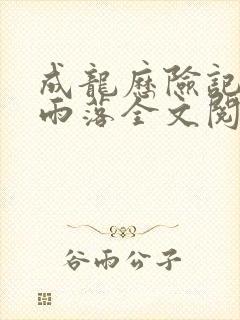 成龍歷險記
雨落全文閱
谷雨公子